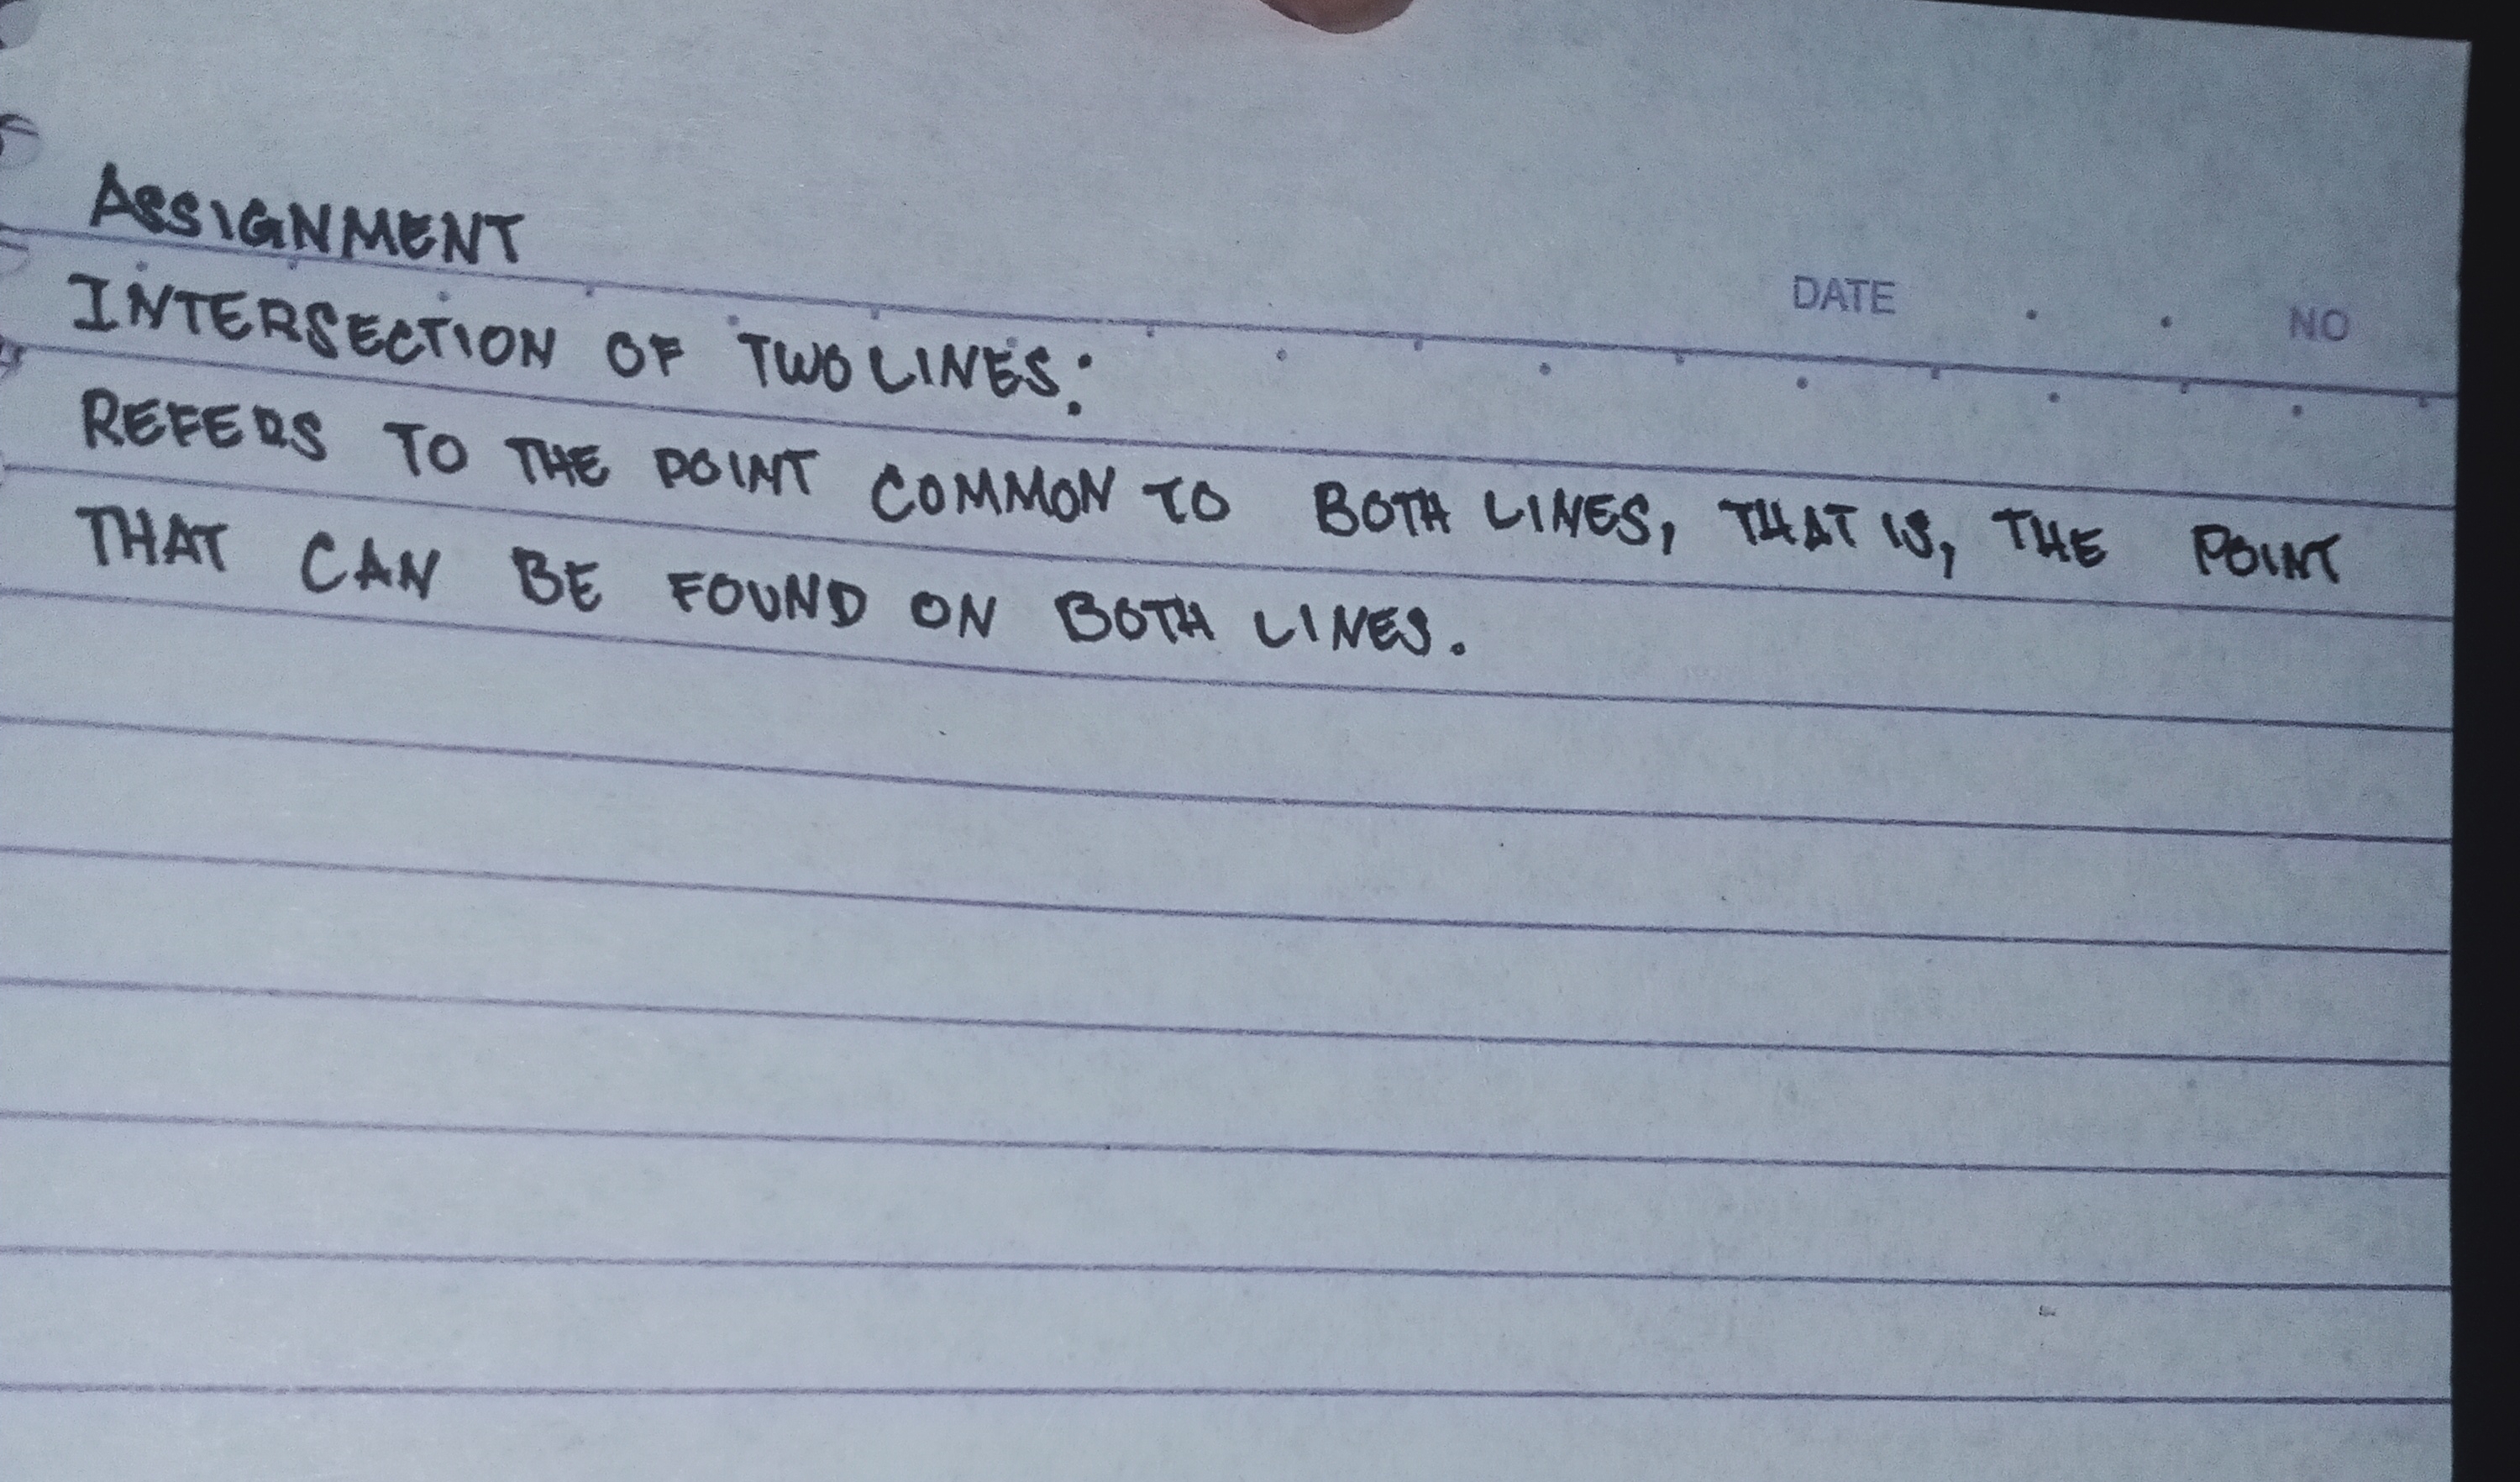 ASSIGNMENT
DATE . . NO
INTERSECTION OF TWO LINES:
REFERS TO THE POINT COMMON TO BOTH LINES, THAT IS, THE POINT
THAT CAN BE FOUND ON BOTH LINES.